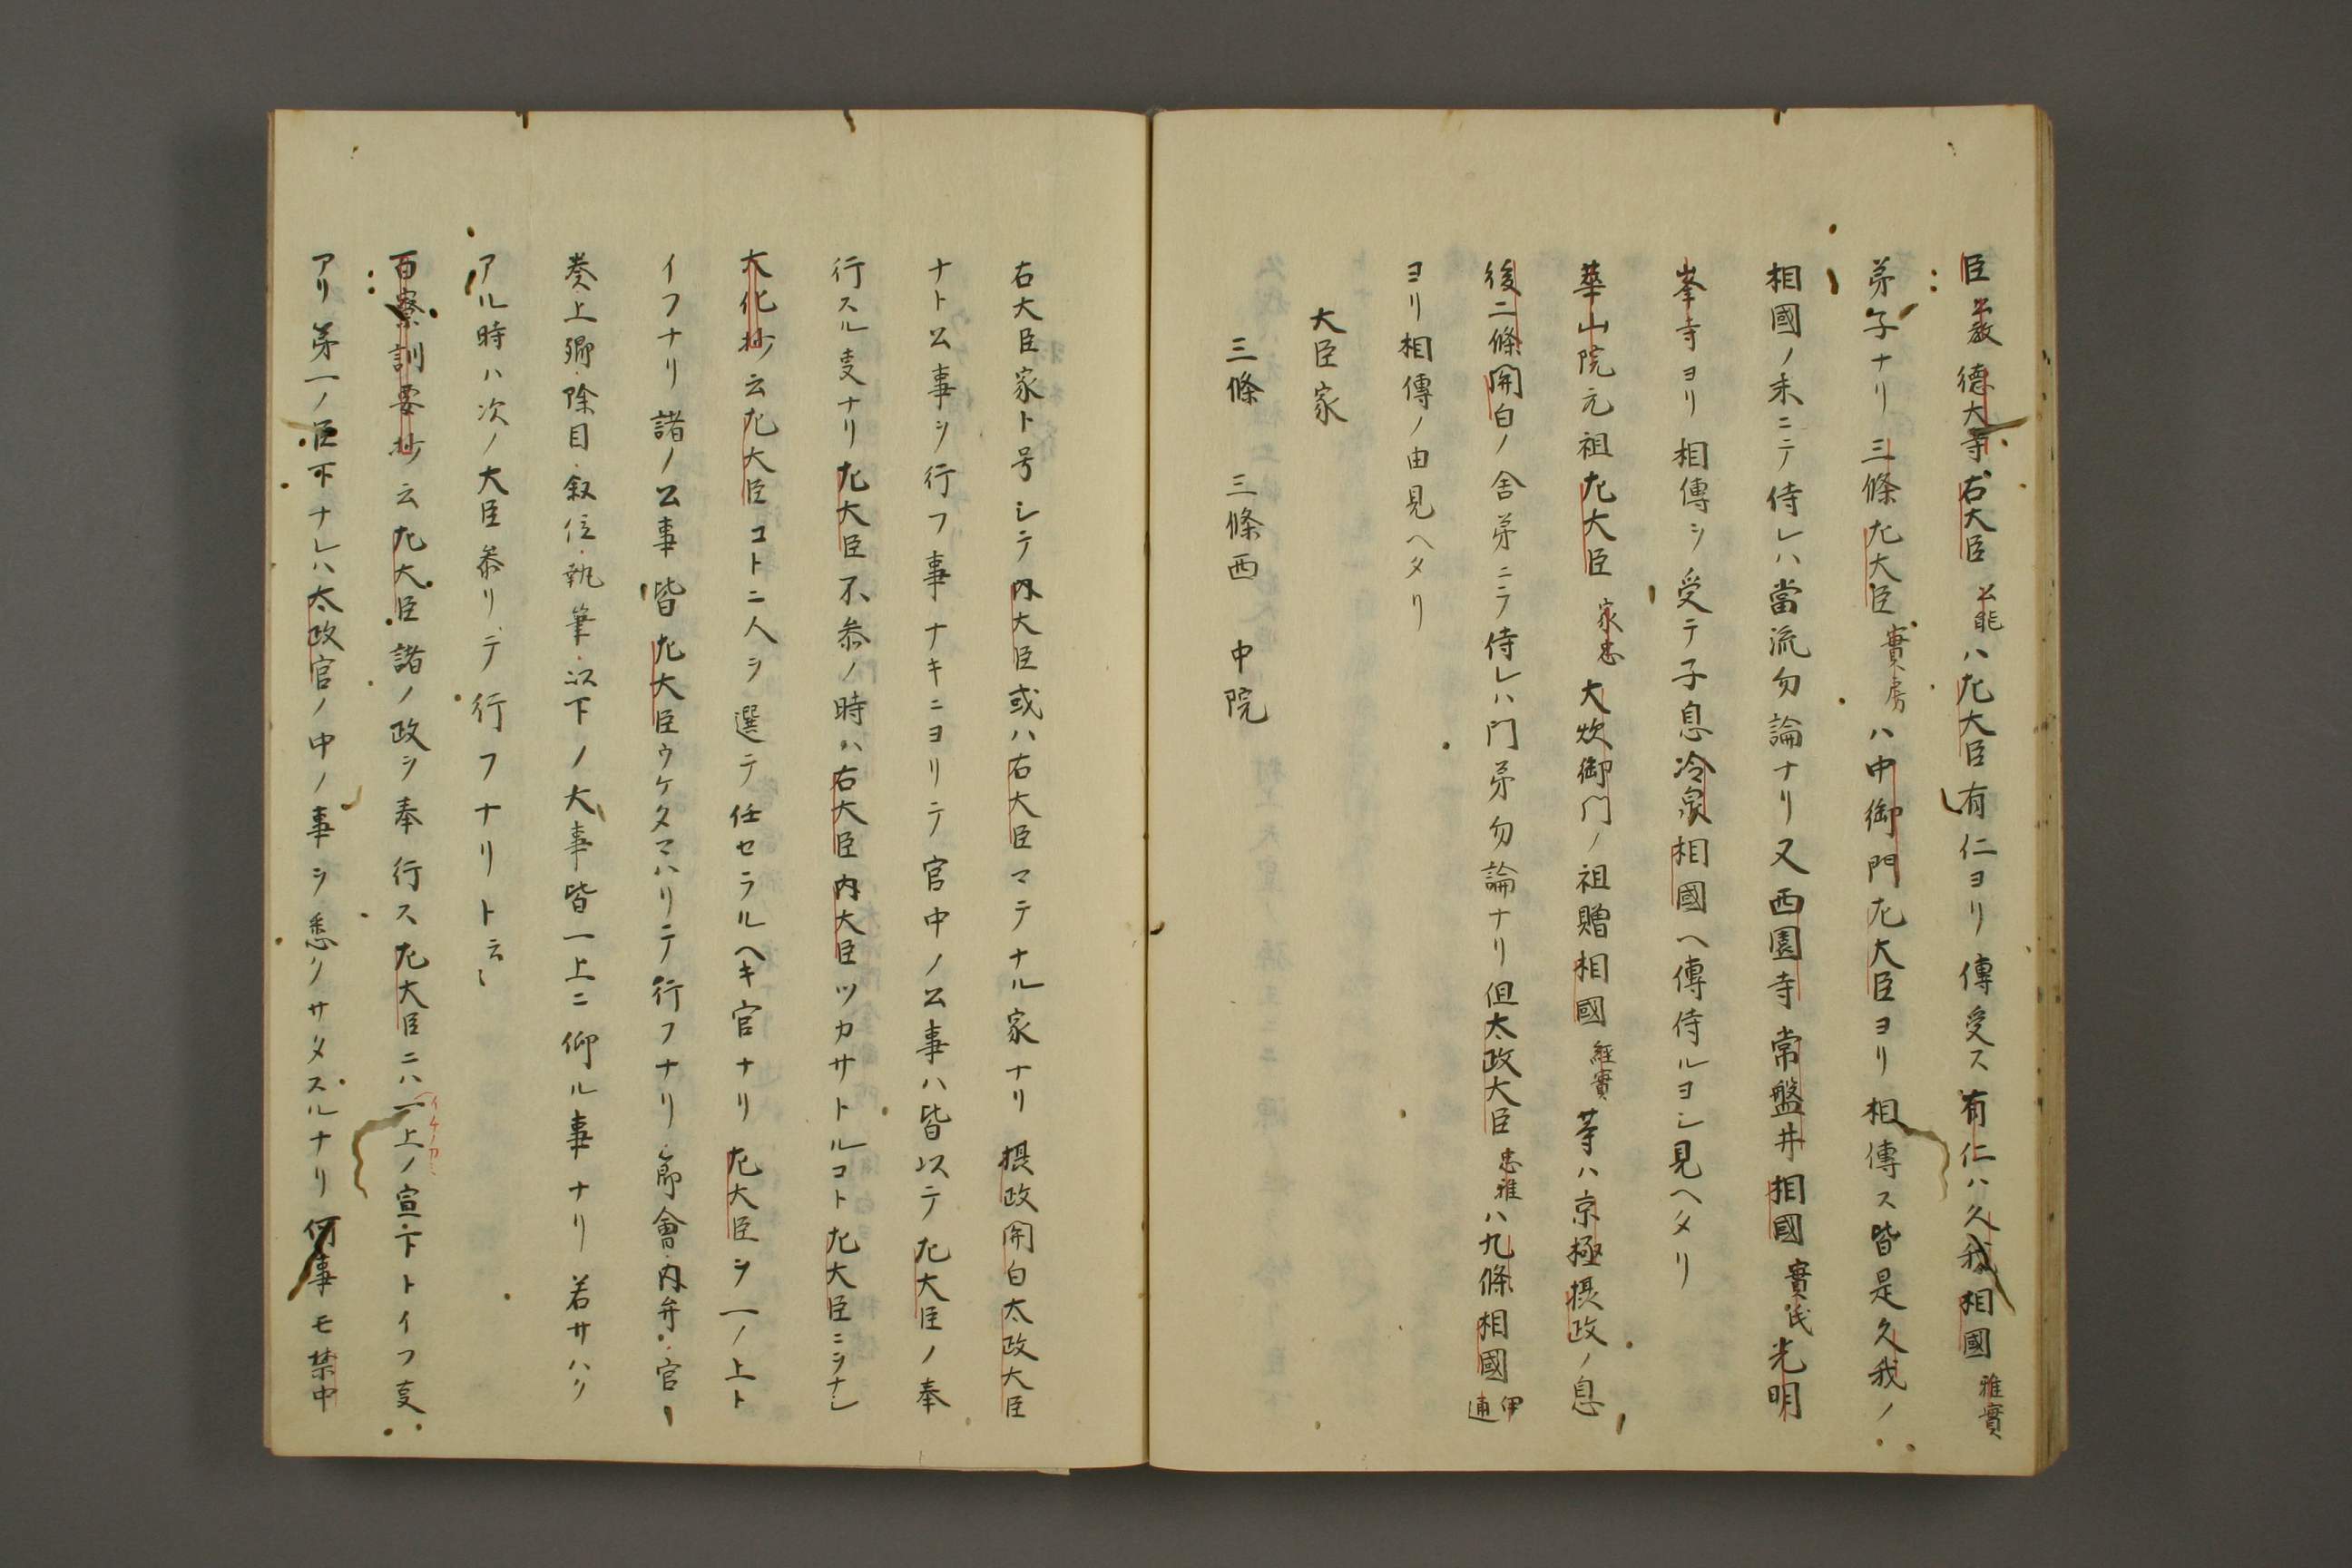 臣公教徳大寺右大臣公能ハ左大臣有仁ヨリ傳受ス有仁ハ久我相國雅實
弟子ナリ三條左大臣實房ハ中御門左大臣ヨリ相傳ス皆是久我ノ
相國ノ末ニテ侍レハ當流勿論ナリ又西園寺常盤井相國實氏光明
峯寺ヨリ相傳シ受テ子息冷泉相國ヘ傳侍ルヨシ見ヘタリ
華山院元祖左大臣家忠大炊御門ノ祖贈相國經實等ハ京極摂政ノ息
後二條関白ノ舎弟ニテ侍レハ門弟勿論ナリ但太政大臣忠雅ハ九條相國伊通
ヨリ相傳ノ由見ヘタリ
大臣家
三條 三條西 中院
右大臣家ト号シテ内大臣或ハ右大臣マテナル家ナリ摂政関白太政大臣
ナト公事シ行フ事ナキニヨリテ官中ノ公事ハ皆以テ左大臣ノ奉
行スル叓ナリ左大臣不参ノ時ハ右大臣内大臣ツカサトルコト左大臣ニヲナシ
大化抄云左大臣コトニ人ヲ選テ任セラルヘキ官ナリ左大臣ヲ一ノ上ト
イフナリ諸ノ公事皆左大臣ウケタマハリテ行フナリ節會内弁官
奏上卿除目叙位執筆以下ノ大事皆一上ニ仰ル事ナリ若サハリ
アル時ハ次ノ大臣参リテ行フナリト云〻
百寮訓要抄云左大臣諸ノ政ヲ奉行ス左大臣ニハ一上ノ宣下トイフ叓
イチノカミ
アリ第一ノ臣下ナレハ太政官ノ中ノ事ヲ悉クサタスルナリ何事モ禁中